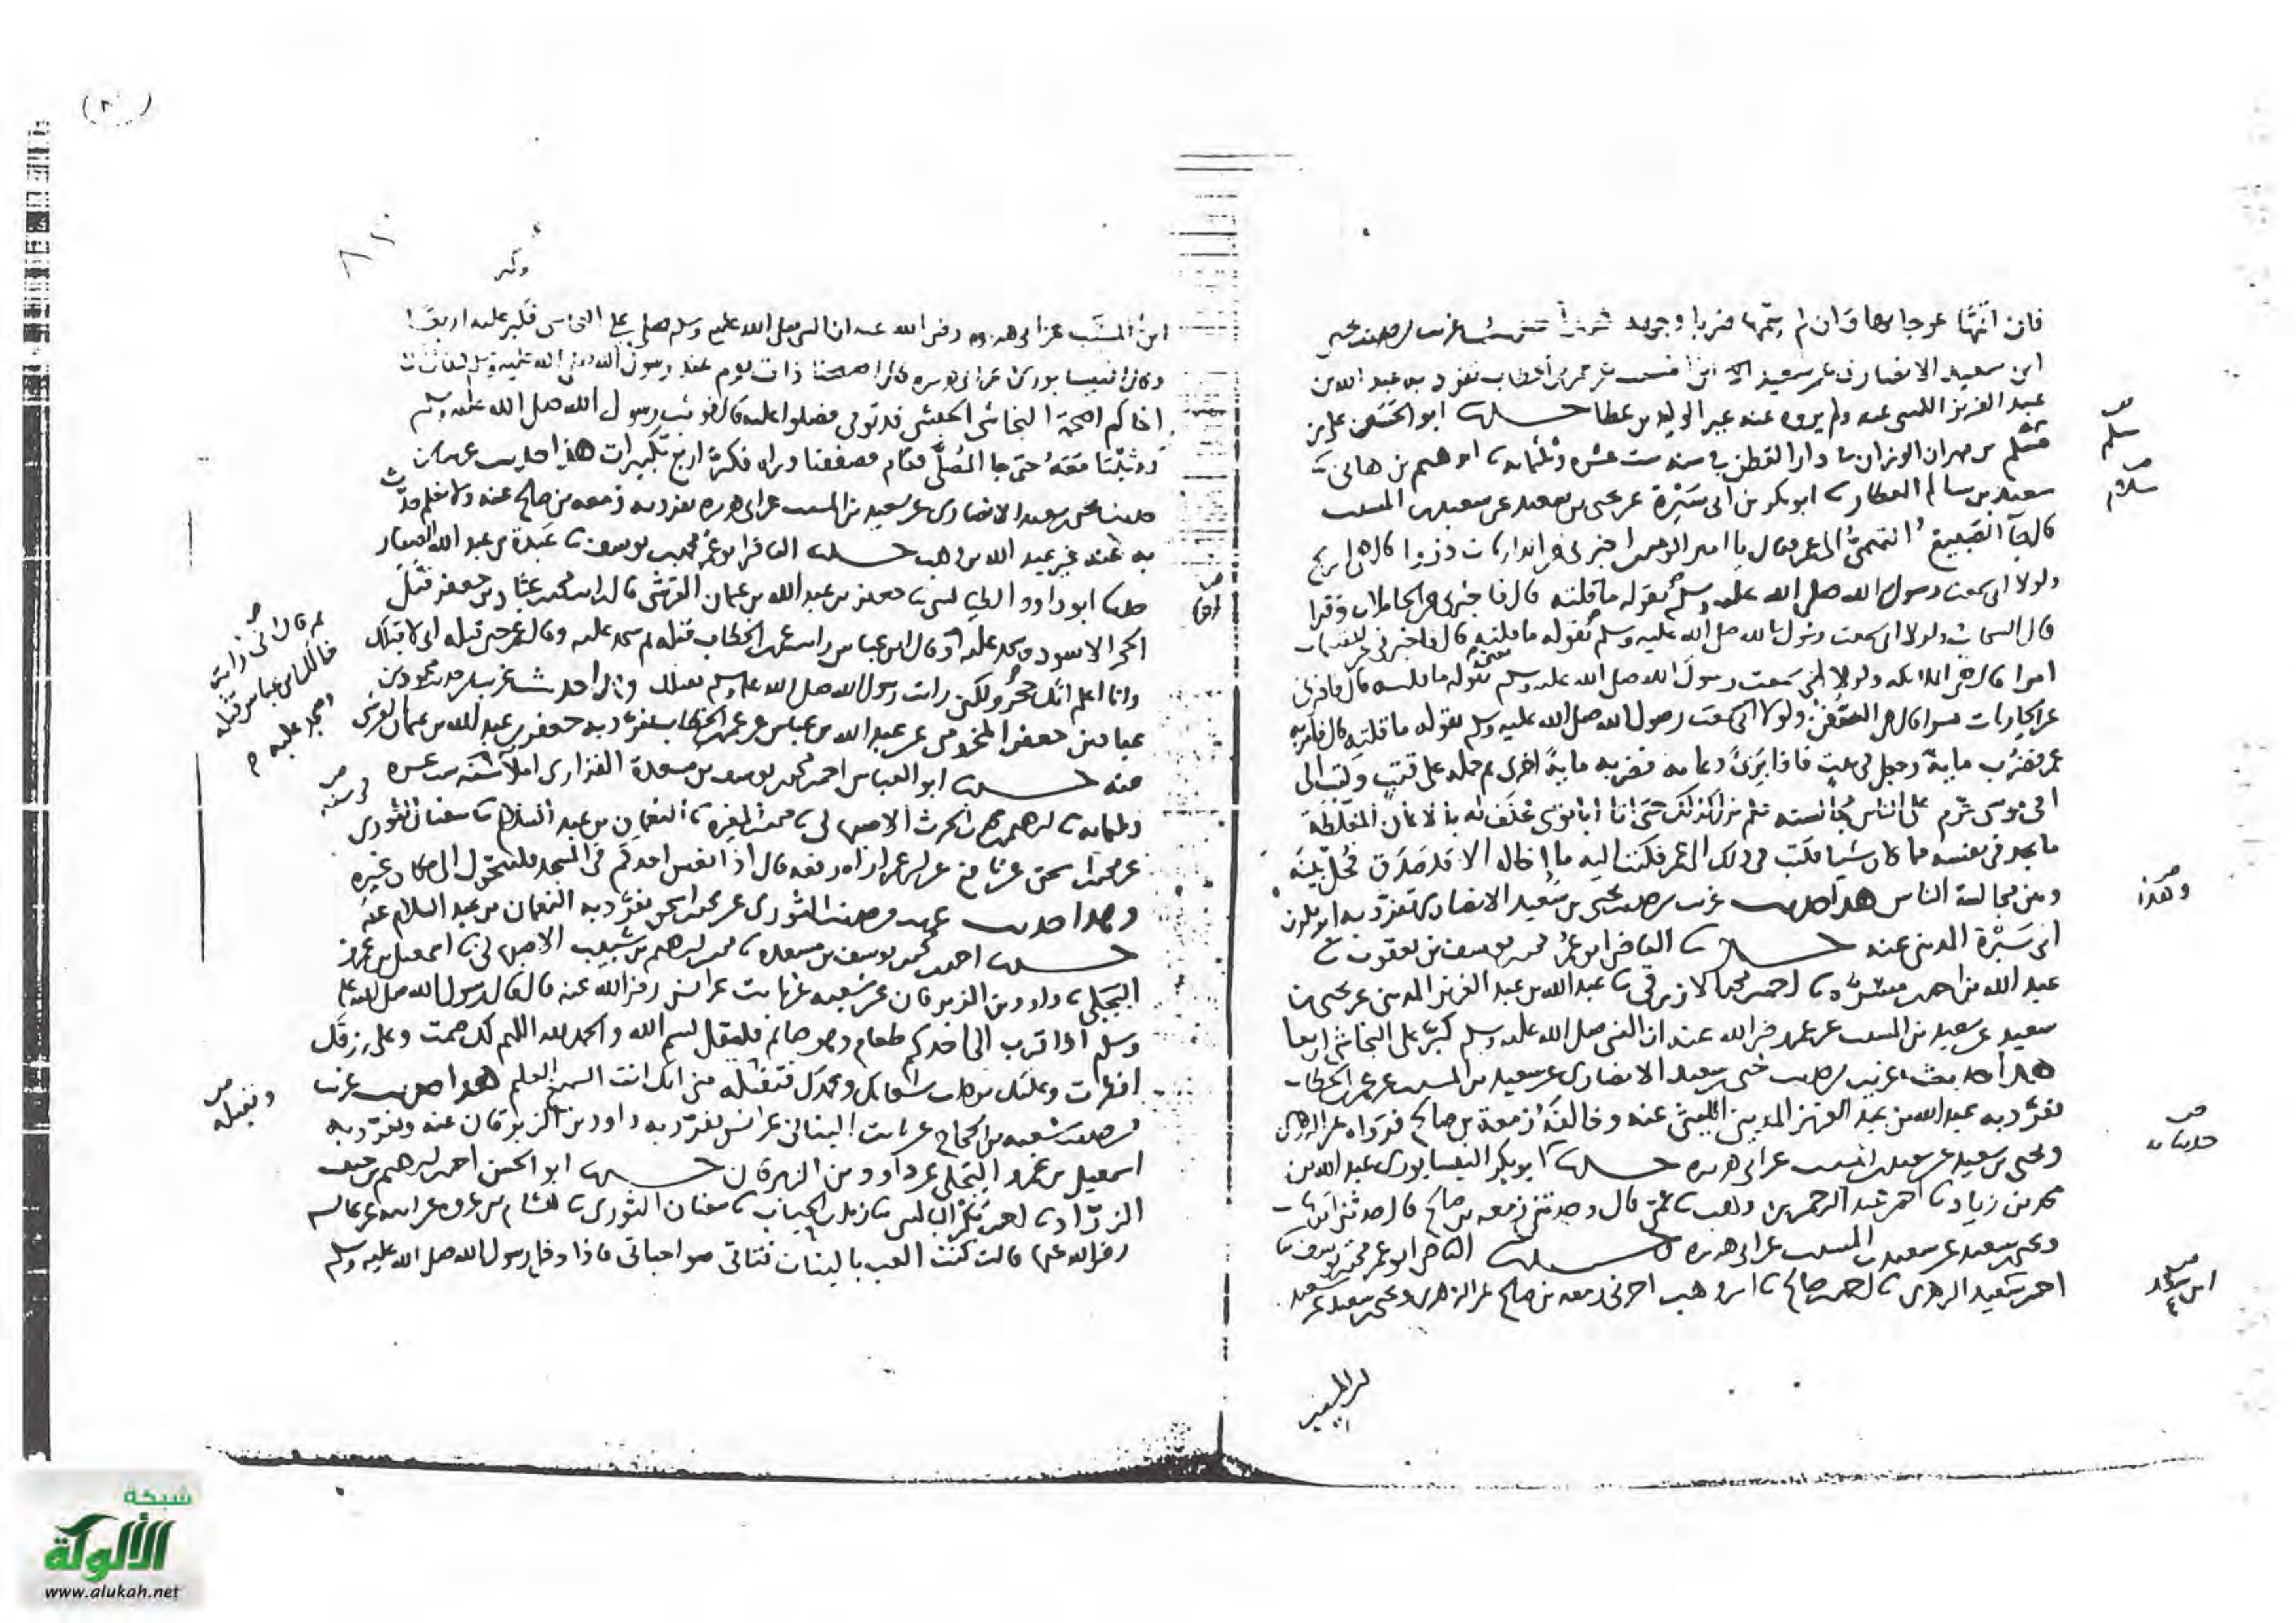 فان اتمها عوجا بوها وان لم يتمها ضربا وجويد غريب من حديث يحيى
ابن سعيد الانصاري عن سعيد بن المسيب عن عمر بن الخطاب تفرد به عبد الله بن
عبد العزيز الليثي عنه ولم يروه عنه غير الوليد بن عطا حدثنا ابو الحسين علي بن
مسلم بن مهران الوزان نا دار القطن في سنه ست عشره وثلثمايه نا ابرهيم بن هاني نا
سعيد بن سالم العطار نا ابو بكر بن ابي سبرة عن يحيى بن سعيد عن سعيد بن المسيب
قال جآ الصبيغ التميمي الى عمر فقال يا امير المومنين اخبرني عن الذاريات ذروا قال هي الريح
ولولا اني سمعت رسول الله صلى الله عليه وسلم يقوله ما قلته قال فاخبرني عن الحاملات وقرا
قال السحاب ولولا اني سمعت رسول الله صلى الله عليه وسلم يقوله ما قلته قال فاخبرني عن المقسمات
امرا قال هي الملايكه ولولا اني سمعت رسول الله صلى الله عليه وسلم يقوله ما قلته قال فاخبرني
عن الجاريات يسرا قال هي السفن ولولا اني سمعت رسول الله صلى الله عليه وسلم يقوله ما قلته قال فامر به
عمر فضرب ماية وجعل في بيت فاذا برئ دعا به فضربه ماية اخرى ثم حمله على قتب وكتب الى
ابي موسى حرم على الناس مجالسته فلم يزل كذلك حتى اتا ابا موسى فحلف له بالايمان المغلظة
ما يجد في نفسه مما كان شيا فكتب في ذلك الى عمر فكتب اليه ما اخاله الا قد صدق فخل بينه
وبين مجالسة الناس هذا حديث غريب من حديث يحيى بن سعيد الانصاري تفرد به ابو بكر بن
ابي سبرة المديني عنه حدثنا القاضي ابو عمر محمد بن يوسف بن يعقوب نا
عبد الله بن احمد نا احمد بن محمد الازرقي نا عبد الله بن عبد العزيز المديني عن يحيى بن
سعيد عن سعيد بن المسيب عن عمر رضي الله عنه ان النبي صلى الله عليه وسلم كبر على النجاشي اربعا
هذا حديث غريب من حديث يحيى بن سعيد الانصاري عن سعيد بن المسيب عن عمر بن الخطاب
تفرد به عبد الله بن عبد العزيز المديني الليثي عنه وخالفه زمعة بن صالح فرواه عن الزهري
ويحيى بن سعيد عن سعيد بن المسيب عن ابي هريره حدثنا ابو بكر النيسابوري عبد الله بن
محمد بن زياد نا احمد بن عبد الرحمن بن وهب نا عمي قال وحدثني زمعه بن صالح قال حدثني ابن شهاب
ويحيى بن سعيد عن سعيد بن المسيب عن ابي هريره ح حدثنا القاضي ابو عمر محمد بن يوسف نا
احمد بن سعيد الزهري نا احمد بن صالح نا ابن وهب اخبرني زمعه بن صالح عن الزهري ويحيى بن سعيد عن سعيد
مسلم
سلام
وهذا
حدثنا به
ابن سعد
ابن المسيب عن ابي هريره رضي الله عنه ان النبي صلى الله عليه وسلم صلى على النجاشي فكبر عليه اربعا
وكبر
وقال النيسابوري عن ابي هريره قال اصبحنا ذات يوم عند رسول الله صلى الله عليه وسلم فقال ان
اخاكم اصحمة النجاشي الحبشي قد توفي فصلوا عليه قال فوثب رسول الله صلى الله عليه وسلم
ووثبنا معه حتى جا المصلى فقام فصففنا وراه فكبر اربع تكبيرات هذا حديث غريب من
حديث يحيى بن سعيد الانصاري عن سعيد بن المسيب عن ابي هريره تفرد به زمعه بن صالح عنه ولا نعلم حدث
به عنه غير عبد الله بن وهب حدثنا القاضي ابو عمر محمد بن يوسف نا عبدة بن عبد الله الصفار
حدثنا ابو داود الطيالسي نا جعفر بن عبد الله بن عثمان القرشي قال رايت محمد بن عباد بن جعفر قبل
الحجر الاسود وسجد عليه وقال ابن عباس رايت عمر بن الخطاب قبله ثم سجد عليه وقال عمر حين قبله اني لاقبلك
وانا اعلم انك حجر ولكني رايت رسول الله صلى الله عليه وسلم يقبلك وهذا حديث غريب من حديث محمد بن
عباد بن جعفر المخزومي عن عبد الله بن عباس عن عمر بن الخطاب تفرد به جعفر بن عبد الله بن عثمان القرشي
عنه حدثنا ابو العباس احمد بن محمد بن يوسف بن مسعدة الفزاري املآ سنه ست عشره
وثلثمايه نا ابرهيم بن محمد بن الحرث الاصبهاني نا محمد بن المغيره نا النعمان بن عبد السلام نا سفيان الثوري
عن محمد بن اسحق عن نافع عن ابن عمر اراه رفعه قال اذا نعس احدكم في المسجد فليتحول الى مكان غيره
وهذا حديث غريب من حديث الثوري عن محمد بن اسحق تفرد به النعمان بن عبد السلام عنه
حدثنا احمد بن محمد بن يوسف بن مسعده نا محمد بن ابرهيم بن شبيب الاصبهاني نا اسمعيل بن عمرو
البجلي نا داود بن الزبرقان عن شعبه عن ثابت عن انس رضي الله عنه قال قال رسول الله صلى الله عليه
وسلم اذا قرب الى احدكم طعام وهو صايم فليقل بسم الله والحمد لله اللهم لك صمت وعلى رزقك
افطرت وعليك توكلت سبحانك وبحمدك فتقبله مني انك انت السميع العليم هذا حديث غريب
من حديث شعبه بن الحجاج عن ثابت البناني عن انس تفرد به داود بن الزبرقان عنه وتفرد به
اسمعيل بن عمرو البجلي عن داود بن الزبرقان حدثنا ابو الحسن احمد بن ابرهيم بن حبيب
الزراد نا احمد بن بكر البالسي نا زيد بن الحباب نا سفيان الثوري نا هشام بن عروه عن ابيه عن عايشه
رضي الله عنها قالت كنت العب بالبنات فتاتي صواحباتي فاذا دخل رسول الله صلى الله عليه وسلم
ثم قال اني رايت
خالك ابن عباس قبله
وسجد عليه
في سنه
وتقبله
شبكة
الألوكة
www.alukah.net